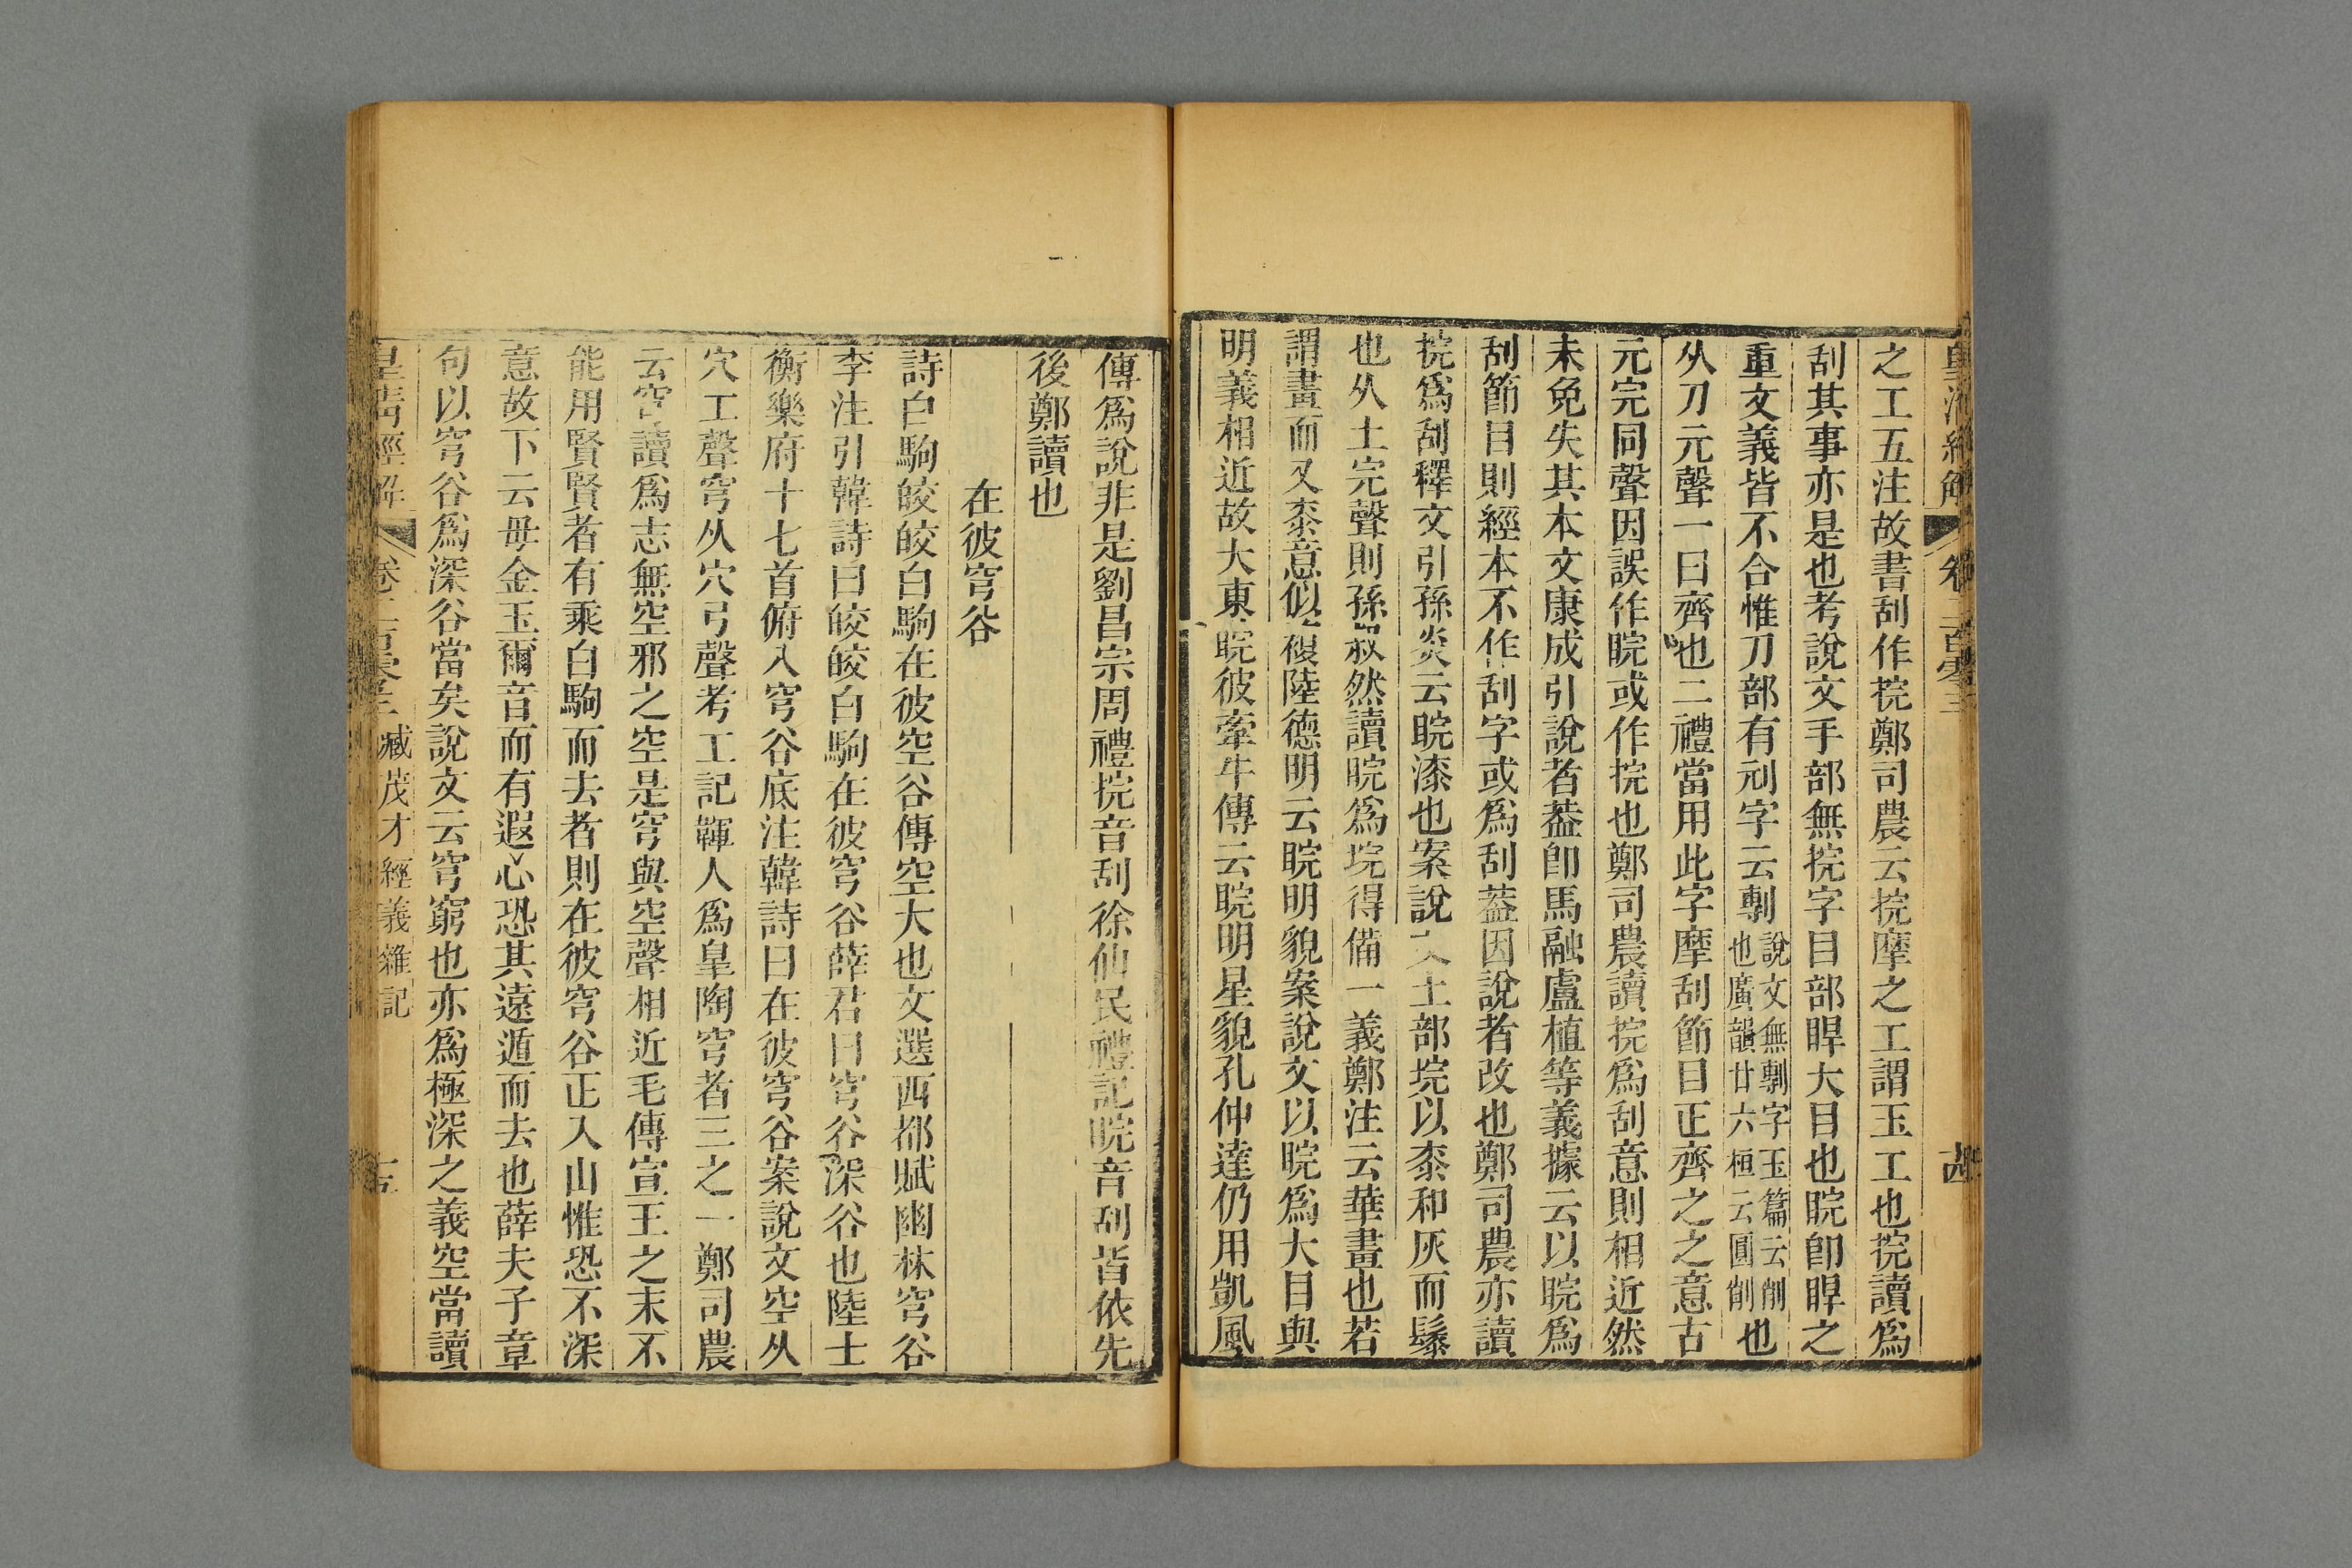 之工五注故書刮作捖鄭司農云捖摩之工謂玉工也捖讀爲
刮其事亦是也考說文手部無捖字目部睅大目也睆卽睅之
重文義皆不合惟刀部有刓字云剸說文無剸字玉篇云削也廣韻廿六桓云圓削也
从刀元聲一曰齊也二禮當用此字摩刮節目正齊之之意古
元完同聲因誤作睆或作捖也鄭司農讀捖爲刮意則相近然
未免失其本文康成引說者葢卽馬融盧植等義據云以睆爲
刮節目則經本不作刮字或爲刮葢因說者改也鄭司農亦讀
捖爲刮釋文引孫炎云睆漆也案說文土部垸以桼和灰而䰍
也从土完聲則孫叔然讀睆爲垸得備一義鄭注云華畫也若
謂畫而又桼意似複陸德明云睆明貌案說文以睆爲大目與
明義相近故大東睆彼牽牛傳云睆明星貌孔仲達仍用凱風
皇清經解 卷二百零三 十四
傳爲說非是劉昌宗周禮捖音刮徐仙民禮記睆音刮皆依先
後鄭讀也
在彼穹谷
詩白駒皎皎白駒在彼空谷傳空大也文選西都賦幽林穹谷
李注引韓詩曰皎皎白駒在彼穹谷薛君曰穹谷深谷也陸士
衡樂府十七首俯入穹谷底注韓詩曰在彼穹谷案說文空从
穴工聲穹从穴弓聲考工記韗人爲皐陶穹者三之一鄭司農
云穹讀爲志無空邪之空是穹與空聲相近毛傳宣王之末不
能用賢賢者有乘白駒而去者則在彼穹谷正入山惟恐不深
意故下云毋金玉爾音而有遐心恐其遠遁而去也薛夫子章
句以穹谷爲深谷當矣說文云穹窮也亦爲極深之義空當讀
皇清經解 卷二百零三 臧茂才經義雜記 十五